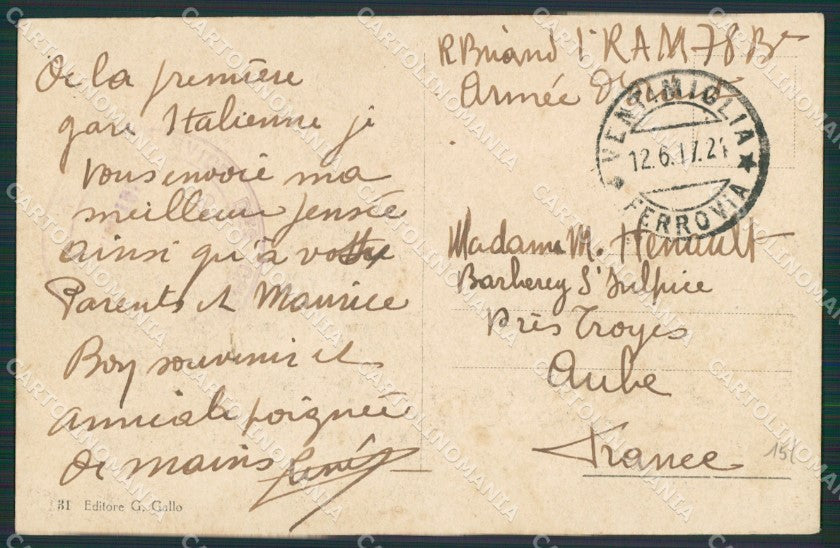 De la première
gare Italienne je
vous envoie ma
meilleure pensée
ainsi qu'à votre
Parents et Maurice
Bon souvenir et
amicale poignée
de mains René
31 Editore G. Gallo
R Briand 1r RAM 78 Bie
Armée
VENTIMIGLIA
12.6.17.21
FERROVIA
Madame M. Henault
Barberey St Sulpice
Près Troyes
Aube
France
15
CARTOLINOMANIA